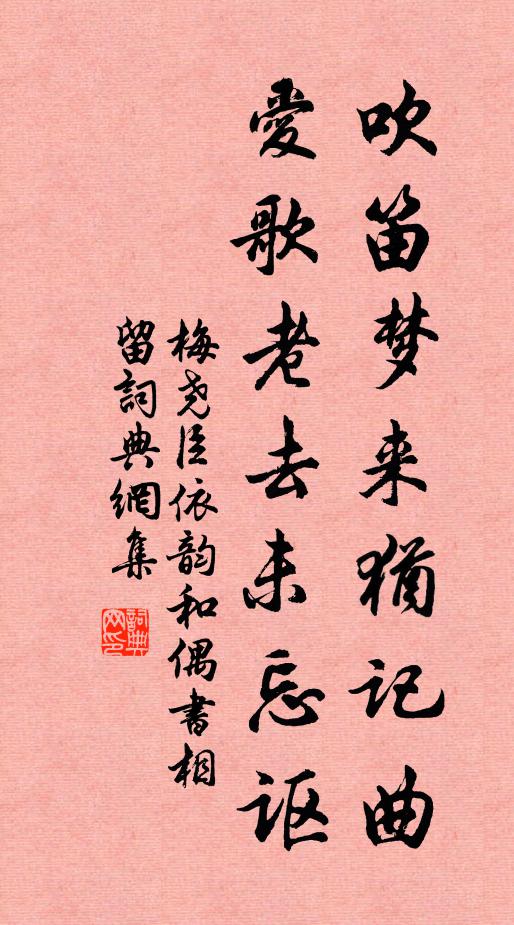 吹笛梦来犹记曲
愛歌老去未忘讴
梅尧臣依韵和偶書相
留詞典網集
詞典网印